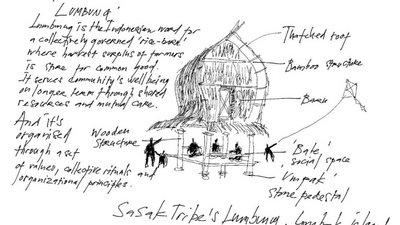 'LUMBUNG'
Lumbung is the Indonesian word for
a collectively governed 'rice-barn'
where harvest surplus of farmers
is store for common good.
It serves community's well being
on longer term through shared
resources and mutual care.
And it's
organised
through a set
of values, collective rituals and
organizational principles.
Thatched roof
Bamboo structure
Baruu
Wooden
Structure
'Bale'
social space
'Umpak'
stone pedestal
Sasak Tribe's Lumbung, Lombok island